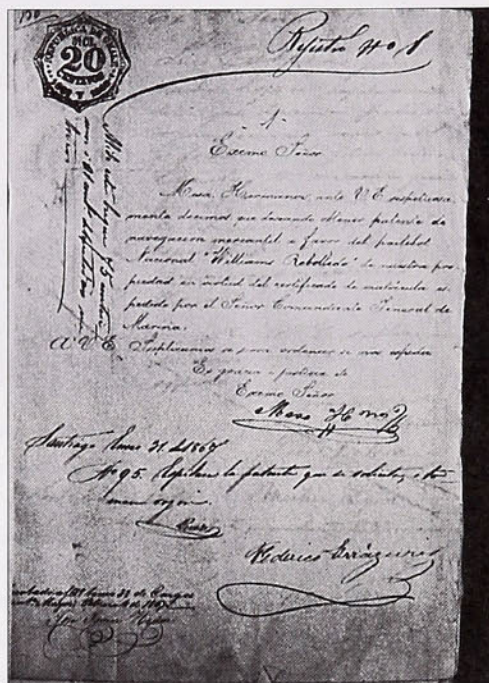 130
REPUBLICA DE CHILE
20
CENTAVOS
Registro Nº 8
Excmo Señor
Maza Hermanos, ante V E respetuosa-
mente decimos que deseando obtener patente de
navegacion mercantil a favor del pailebot
Nacional "Williams Rebolledo" de nuestra pro
piedad en virtud del certificado de matrícula es
pedido por el Señor Comandante General de
Marina.
A V E Suplicamos se sirva ordenar se nos espida
Es gracia i justicia de
Excmo Señor
Maza Hnos
Mide este buque 75
Santiago Enero 31 de 1867
Nº 95. la patente que se solicita, i tó
mese razon.
Federico Errázuriz